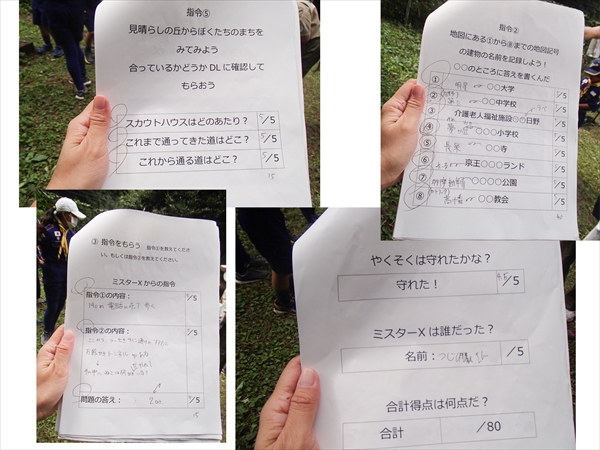 指令⑤
見晴らしの丘からぼくたちのまちを
みてみよう
合っているかどうか DL に確認して
もらおう
スカウトハウスはどのあたり？ 5/5
これまで通ってきた道はどこ？ 5/5
これから通る道はどこ？ 5/5
15
指令②
地図にある①から⑧までの地図記号
の建物の名前を記録しよう！
○○のところに答えを書くんだ
① 明星 ○○大学 /5
② ○○中学校 /5
③ 介護老人福祉施設○○日野 /5
④ 夢が丘 ○○○小学校 /5
⑤ 長泉 ○○寺 /5
⑥ 京王○○○ランド /5
⑦ ○○○○公園 /5
⑧ ○○教会 /5
40
③ 指令をもらう 指令①を教えてくださ
い、もしくは指令②を教えてください。
ミスターXからの指令
指令①の内容： /5
指令②の内容： /5
問題の答え： 200 /5
15
やくそくは守れたかな？
守れた！ 4.5/5
ミスターXは誰だった？
名前： /5
合計得点は何点だ？
合計 /80